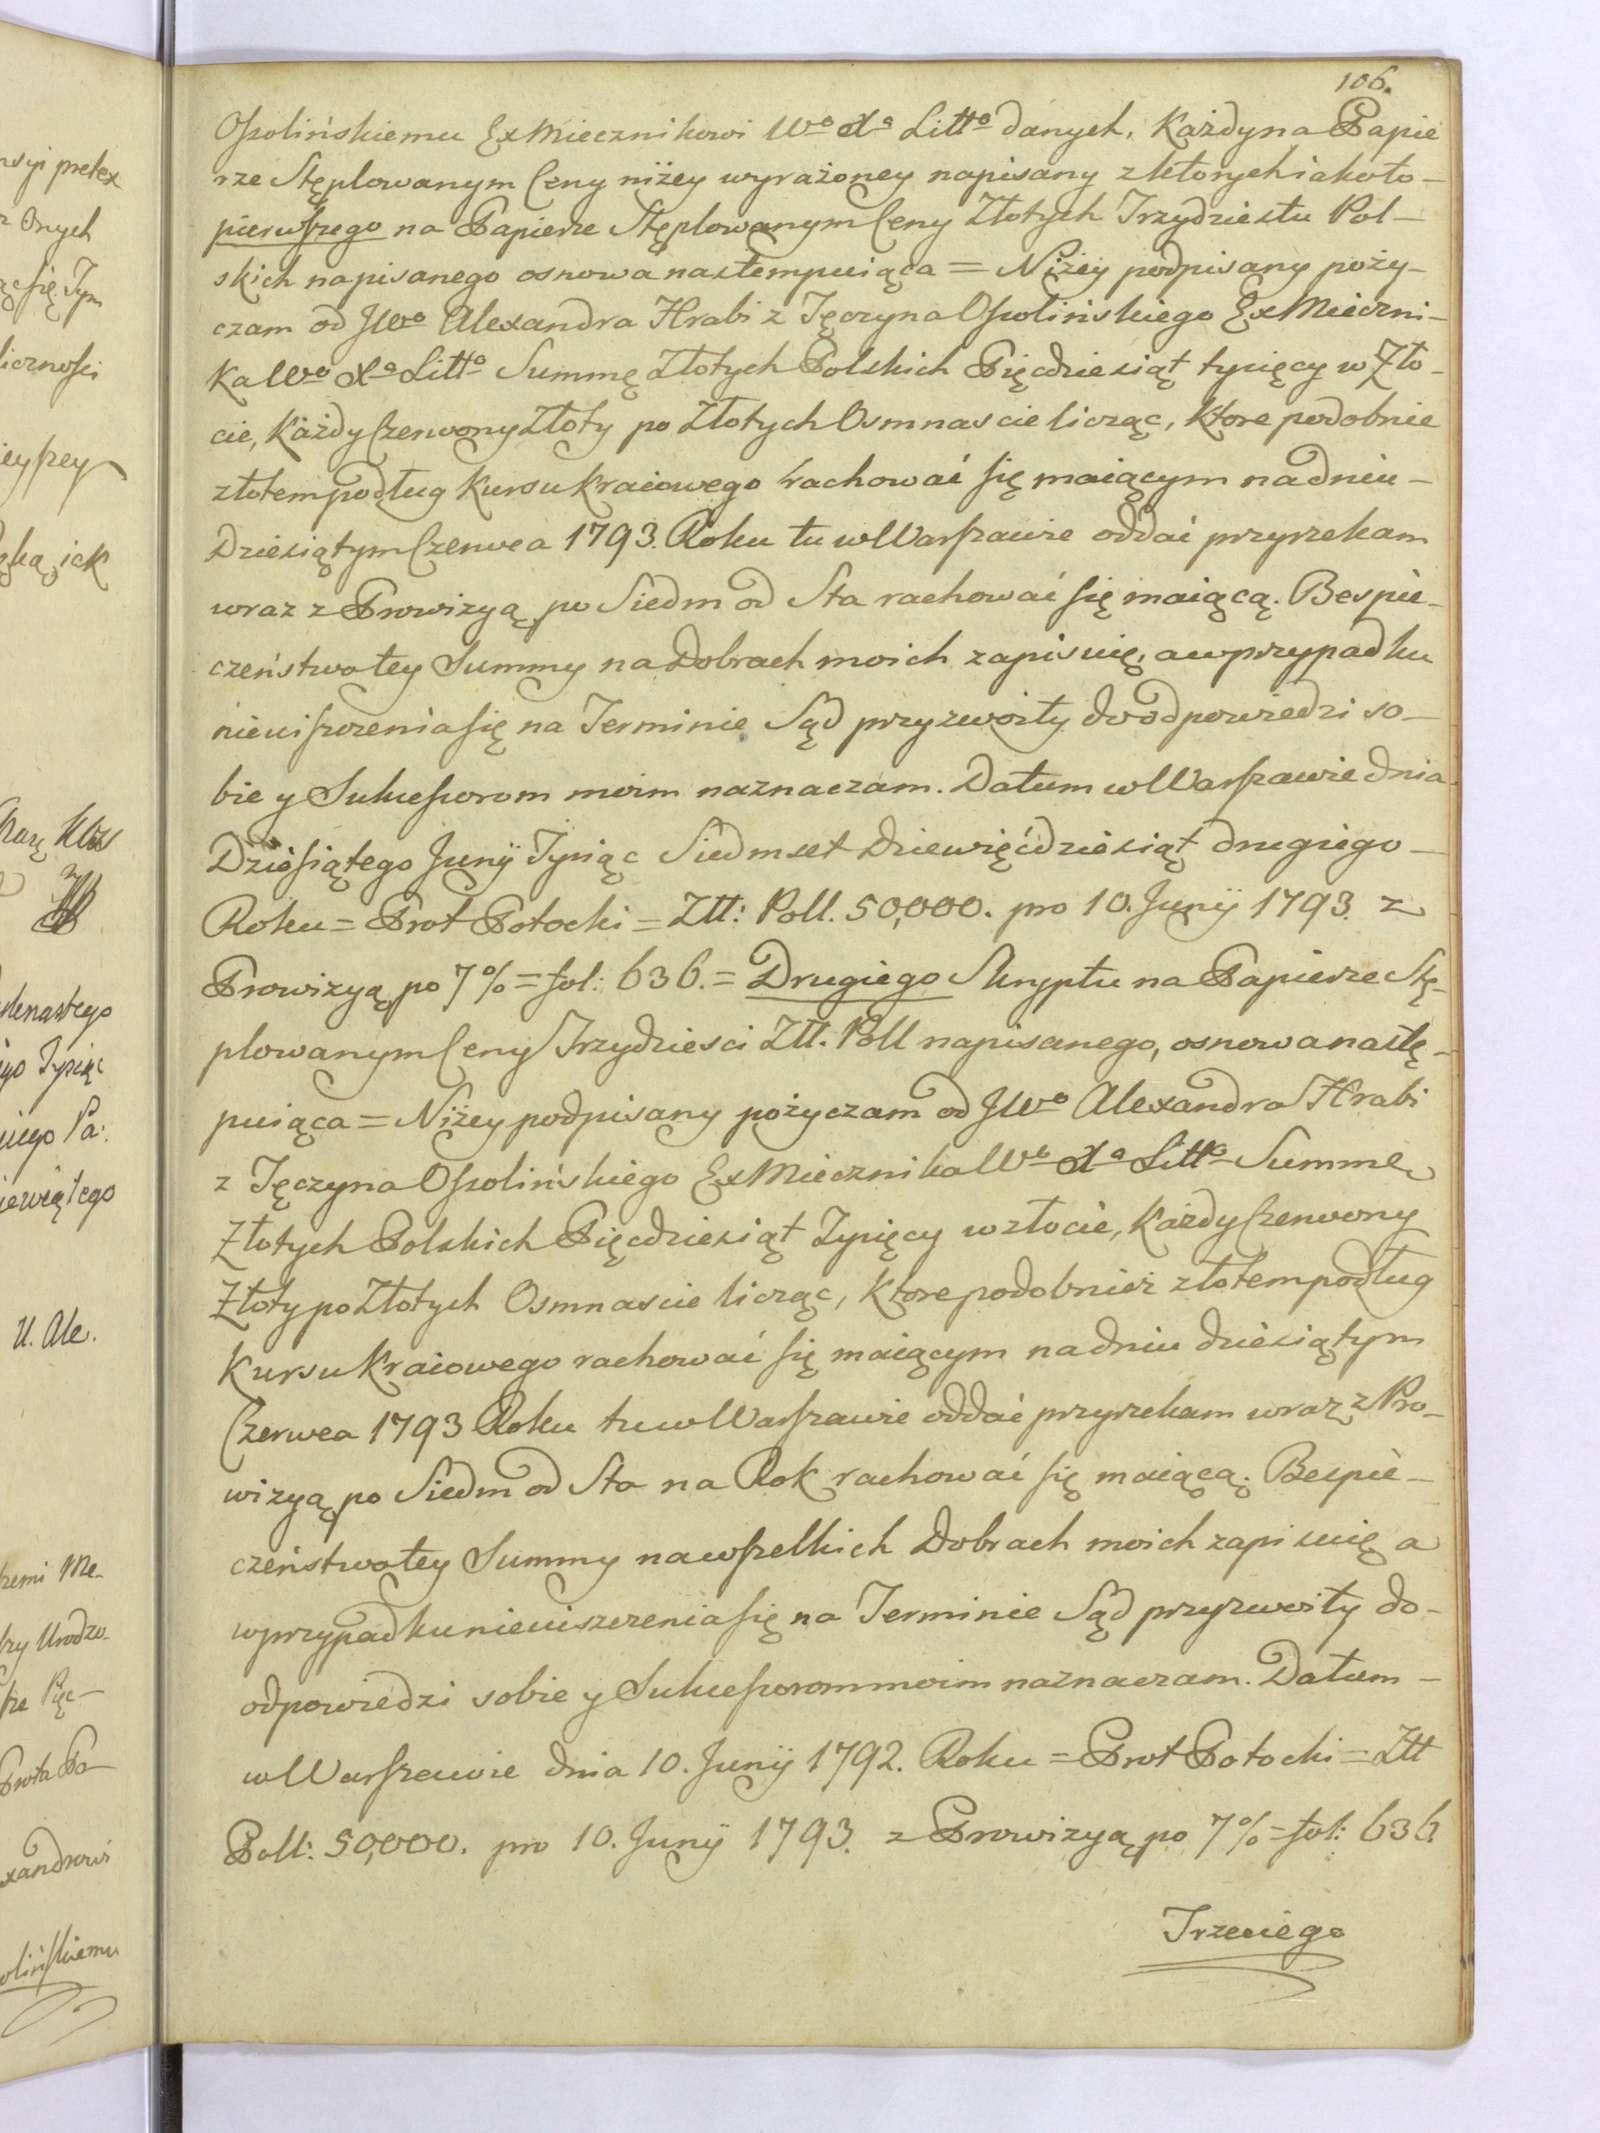 106.
Ossolińskiemu ExMiecznikowi Wo Xa Litto danych, Każdy na Papie
rze Stęplowanym Ceny niżey wyrażoney napisany z ktorych iakoto –
pierwszego na Papierze Stęplowanym Ceny Złotych Trzydziestu Pol –
skich napisanego osnowa nastempuiąca = Niżey podpisany poży –
czam od JWo Alexandra Hrabi z Tęczyna Ossolińskiego ExMieczni –
ka Wo Xa Litto Summę Złotych Polskich Pięcdziesiąt tysięcy w Zło –
cie, Każdy Czerwony Złoty po Złotych Osmnascie licząc, Ktore podobnie
złotem podług Kursu kraiowego rachować się maiącym na dniu –
Dziesiątym Czerwca 1793. Roku tu w Warszawie oddać przyrzekam
wraz z Prowizyą po Siedm od Sta rachować się maiącą. Bespie –
czeństwo tey Summy na Dobrach moich zapisuię, a w przypadku
nieuiszczenia się na Terminie Sąd przyzwoity do odpowiedzi so –
bie y Sukcessorom moim naznaczam. Datum w Warszawie dnia
Dziesiątego Junÿ Tysiąc Siedmset Dziewięćdziesiąt drugiego –
Roku = Prot Potocki = Złł: Poll. 50,000. pro 10. Junÿ 1793. z
Prowizyą po 7% = fol: 636. = Drugiego Skryptu na Papierze Stę –
plowanym Ceny Trzydziesci Złł. Poll napisanego, osnowa nastę –
puiąca = Niżey podpisany pożyczam od JWo Alexandra Hrabi
z Tęczyna Ossolińskiego ExMiecznika Wo Xa Litto Summę
Złotych Polskich Pięcdziesiąt Tysięcy w złocie, Każdy Czerwony
Złoty po Złotych Osmnascie licząc, Ktore podobnież złotem podług
Kursu Kraiowego rachować się maiącym na dniu dziesiątym
Czerwca 1793 Roku tu w Warszawie oddać przyrzekam wraz z Pro –
wizyą po Siedm od Sta na Rok rachować się maiącą. Bespie –
czeństwo tey Summy na wszelkich Dobrach moich zapisuię a
w przypadku nieuiszczenia się na Terminie Sąd przyzwoity do –
odpowiedzi sobie y Sukcessorom moim naznaczam. Datum –
w Warszawie dnia 10. Junÿ 1792. Roku = Prot Potocki = Złł
Poll: 50,000. pro 10. Junÿ 1793. z Prowizyą po 7% = fol: 636
Trzeciego